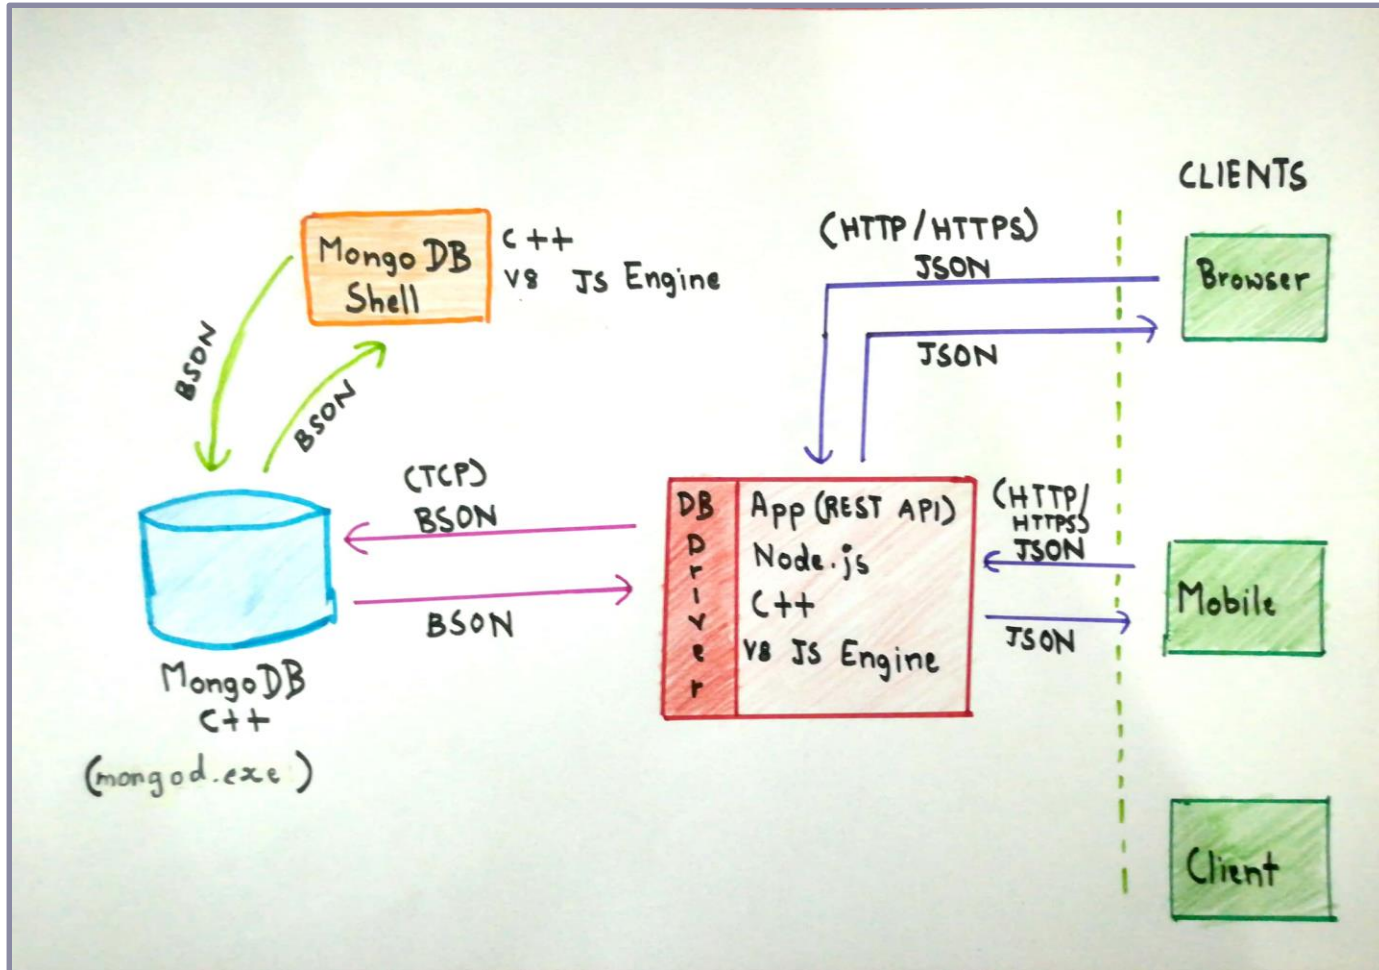 CLIENTS
MongoDB
Shell
C++
V8 JS Engine
(HTTP/HTTPS)
JSON
JSON
Browser
BSON
BSON
(TCP)
BSON
BSON
DB
Driver
App (REST API)
Node.js
C++
V8 JS Engine
(HTTP/
HTTPS)
JSON
JSON
Mobile
MongoDB
C++
(mongod.exe)
Client